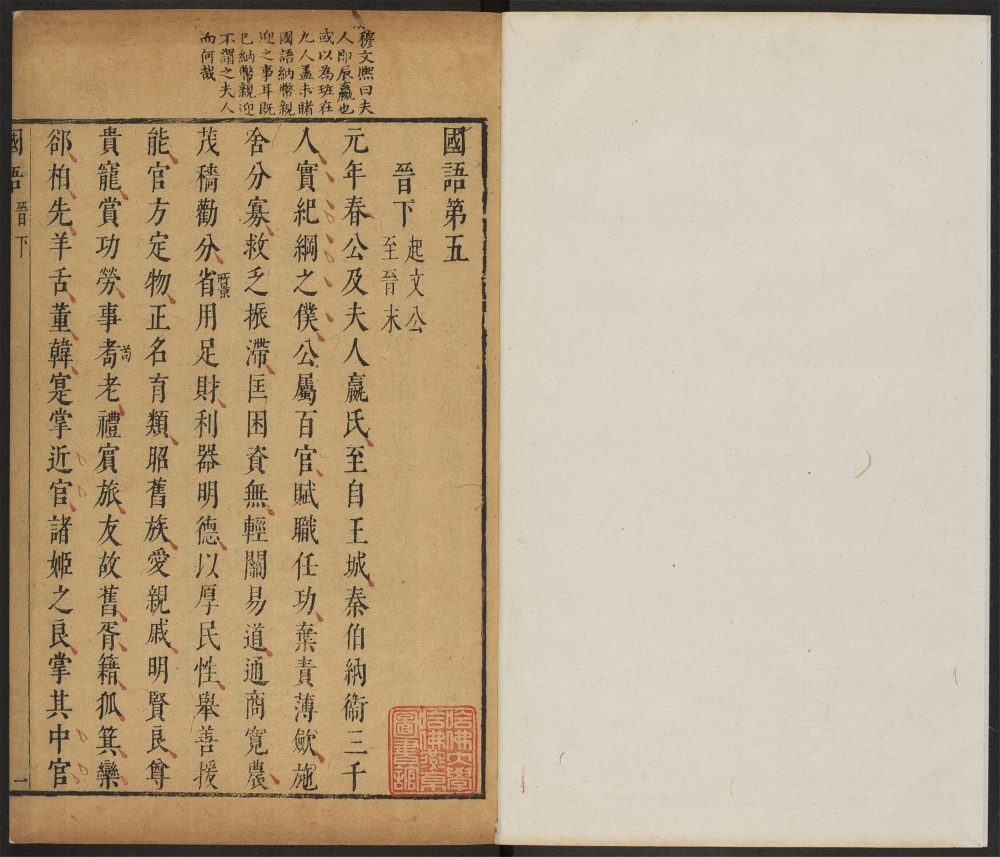 穆文熙曰夫
人即辰嬴也
或以為班在
九人盖未睹
國語納幣親
迎之事耳既
已納幣親迎
不謂之夫人
而何哉
國語第五
晉下
起文公
至晉末
元年春公及夫人嬴氏至自王城秦伯納衛三千
人實紀綱之僕公屬百官賦職任功棄責薄歛施
舍分寡救乏振滯匡困資無輕關易道通商寬農
茂穡勸分省用足財利器明德以厚民性舉善援
能官方定物正名育類昭舊族愛親戚明賢良尊
貴寵賞功勞事耇老禮賓旅友故舊胥籍狐箕欒
郤柏先羊舌董韓寔掌近官諸姬之良掌其中官
苟
國語
晉下
一
哈佛大學
哈佛燕京
圖書館